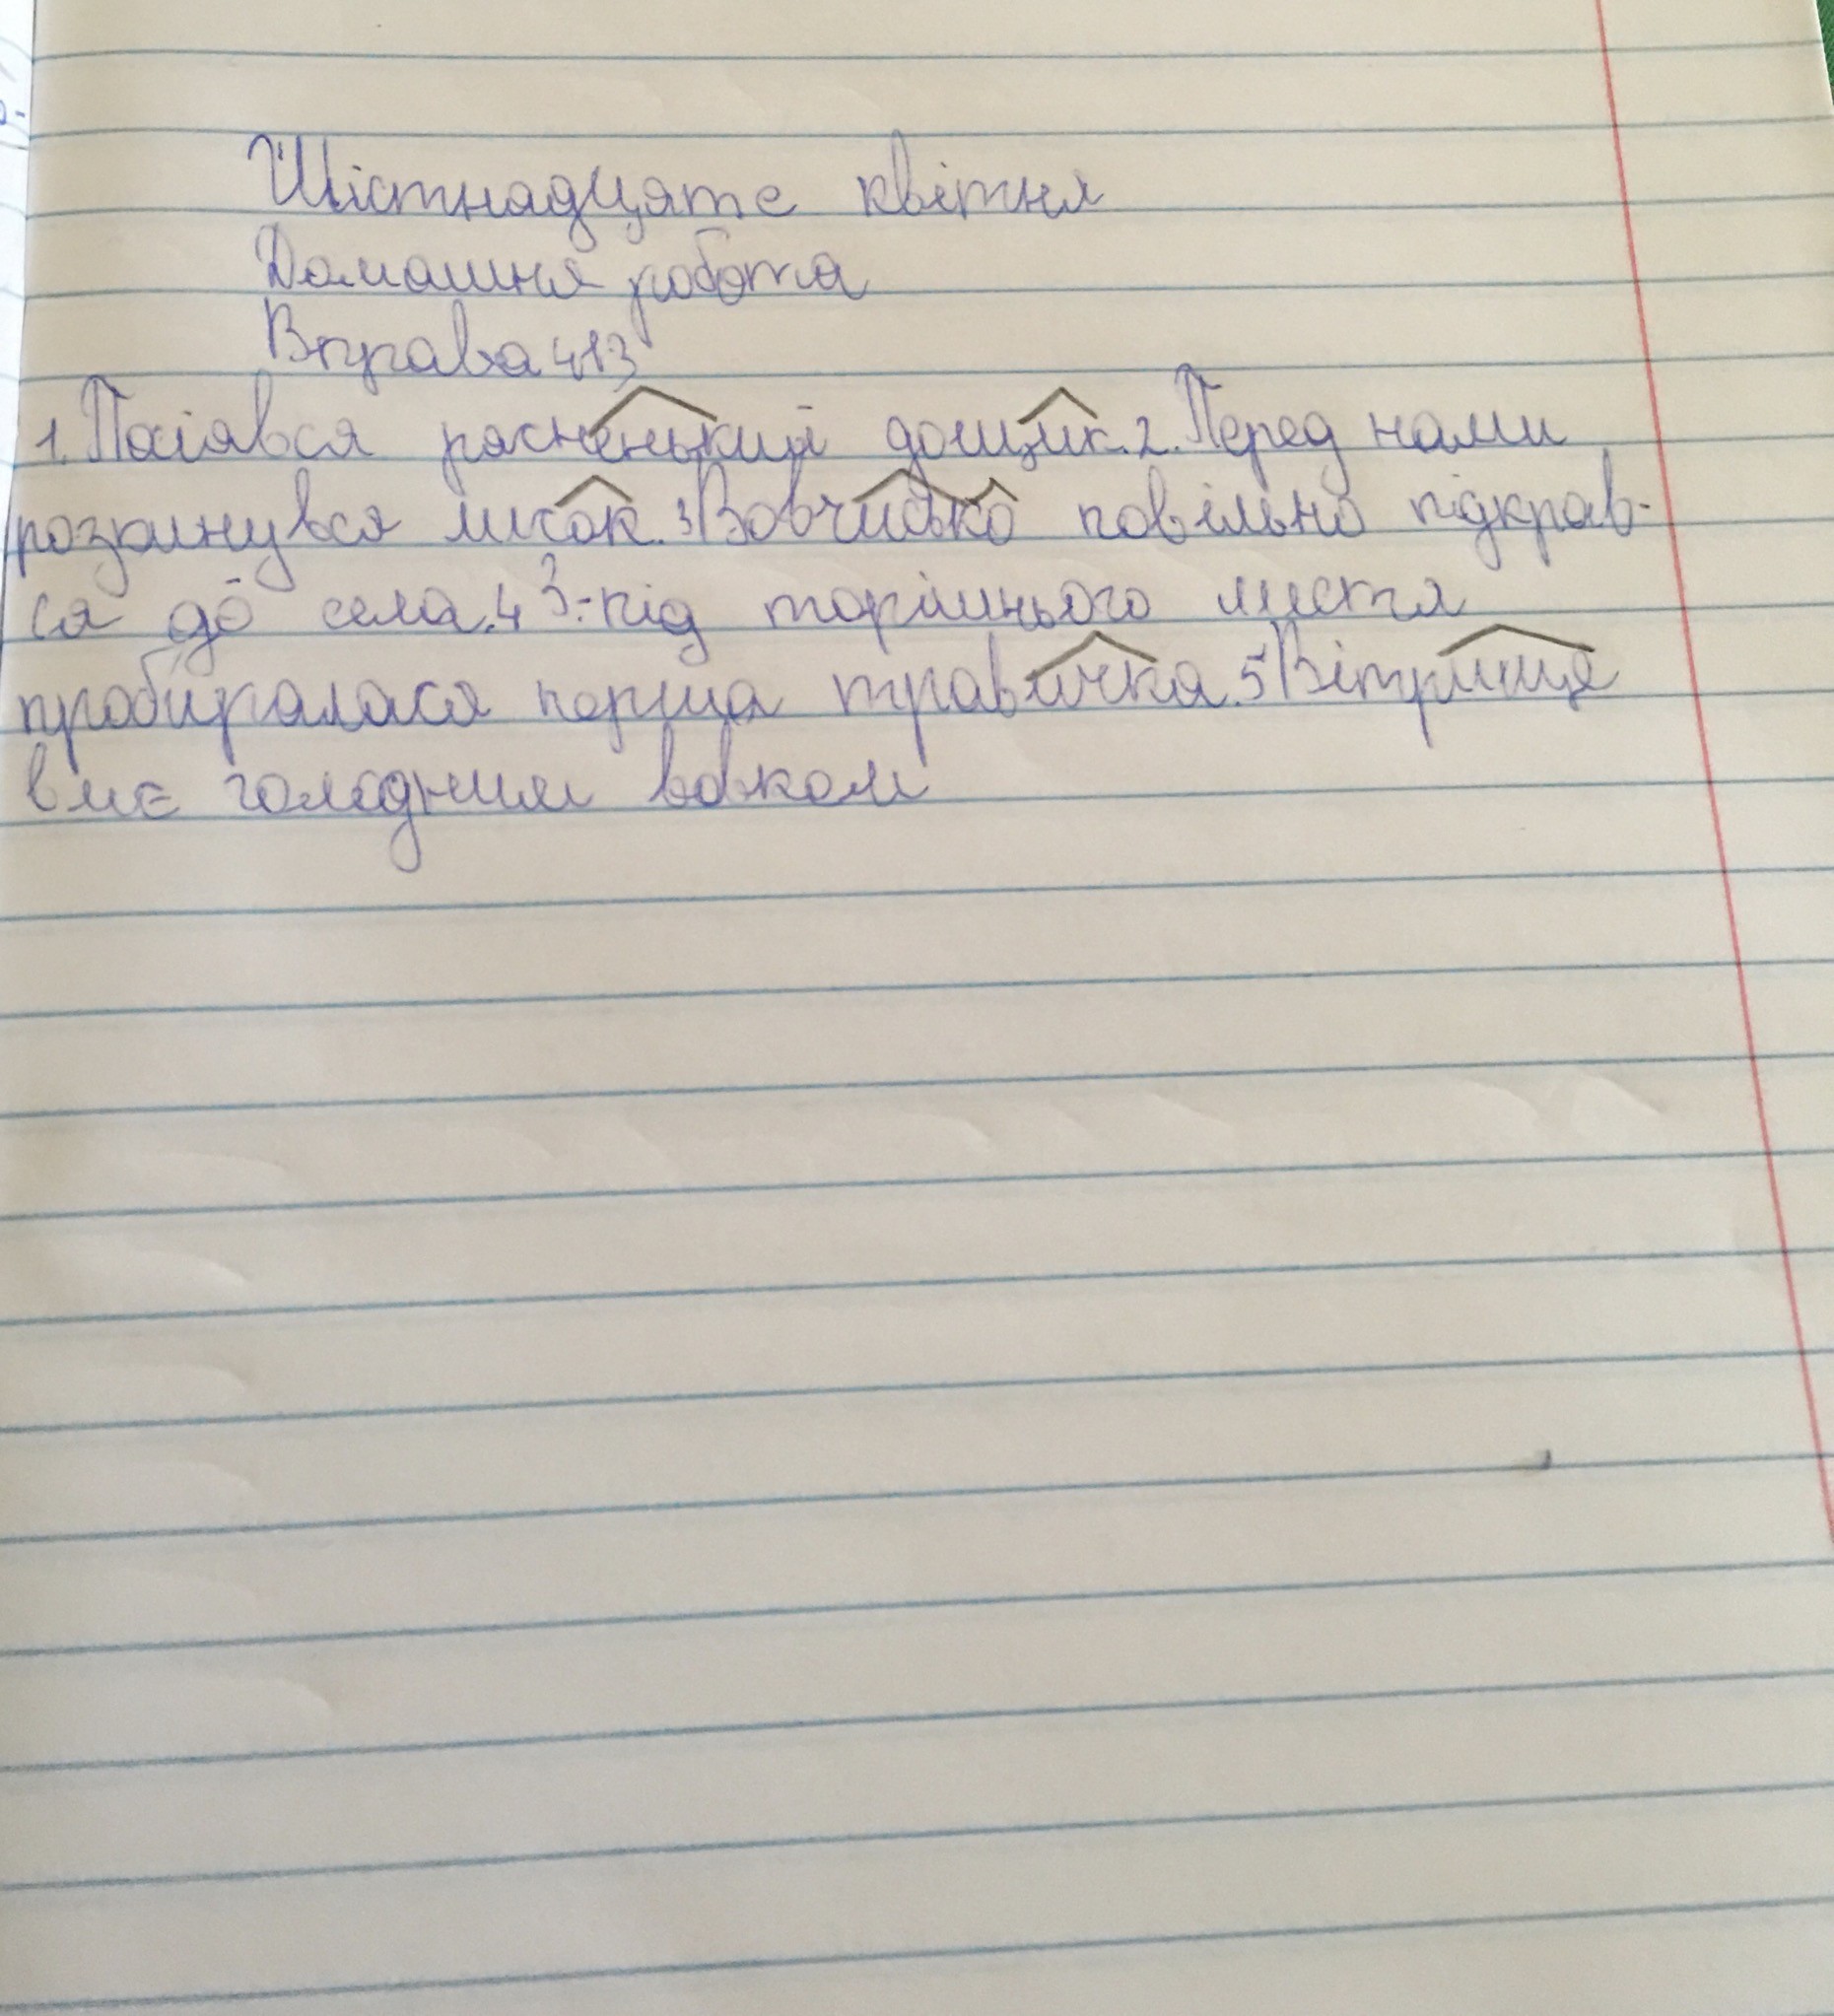 Шістнадцяте квітня
Домашня робота
Вправа 413
1. Посіявся рясненький дощик. 2. Перед нами
розкинувся лисок. 3 Вовчисько повільно підкрав-
ся до села. 4 З-під торішнього листя
пробиралася перша травичка. 5 Вітрище
виє голодним вовком